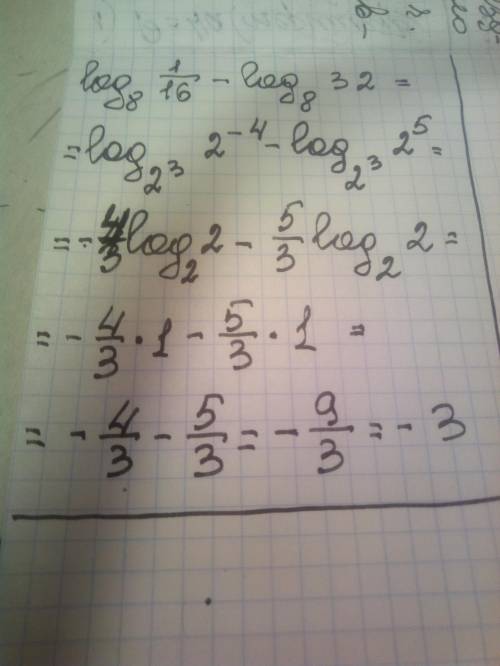 log₈ 1/16 - log₈ 32 =
= log_{2³} 2⁻⁴ - log_{2³} 2⁵ =
= - 4/3 log₂ 2 - 5/3 log₂ 2 =
= - 4/3 · 1 - 5/3 · 1 =
= - 4/3 - 5/3 = - 9/3 = - 3